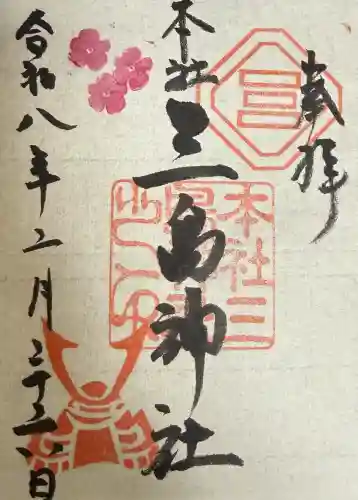 奉拝
本社
三島神社
令和八年二月二十二日
本社三
之印